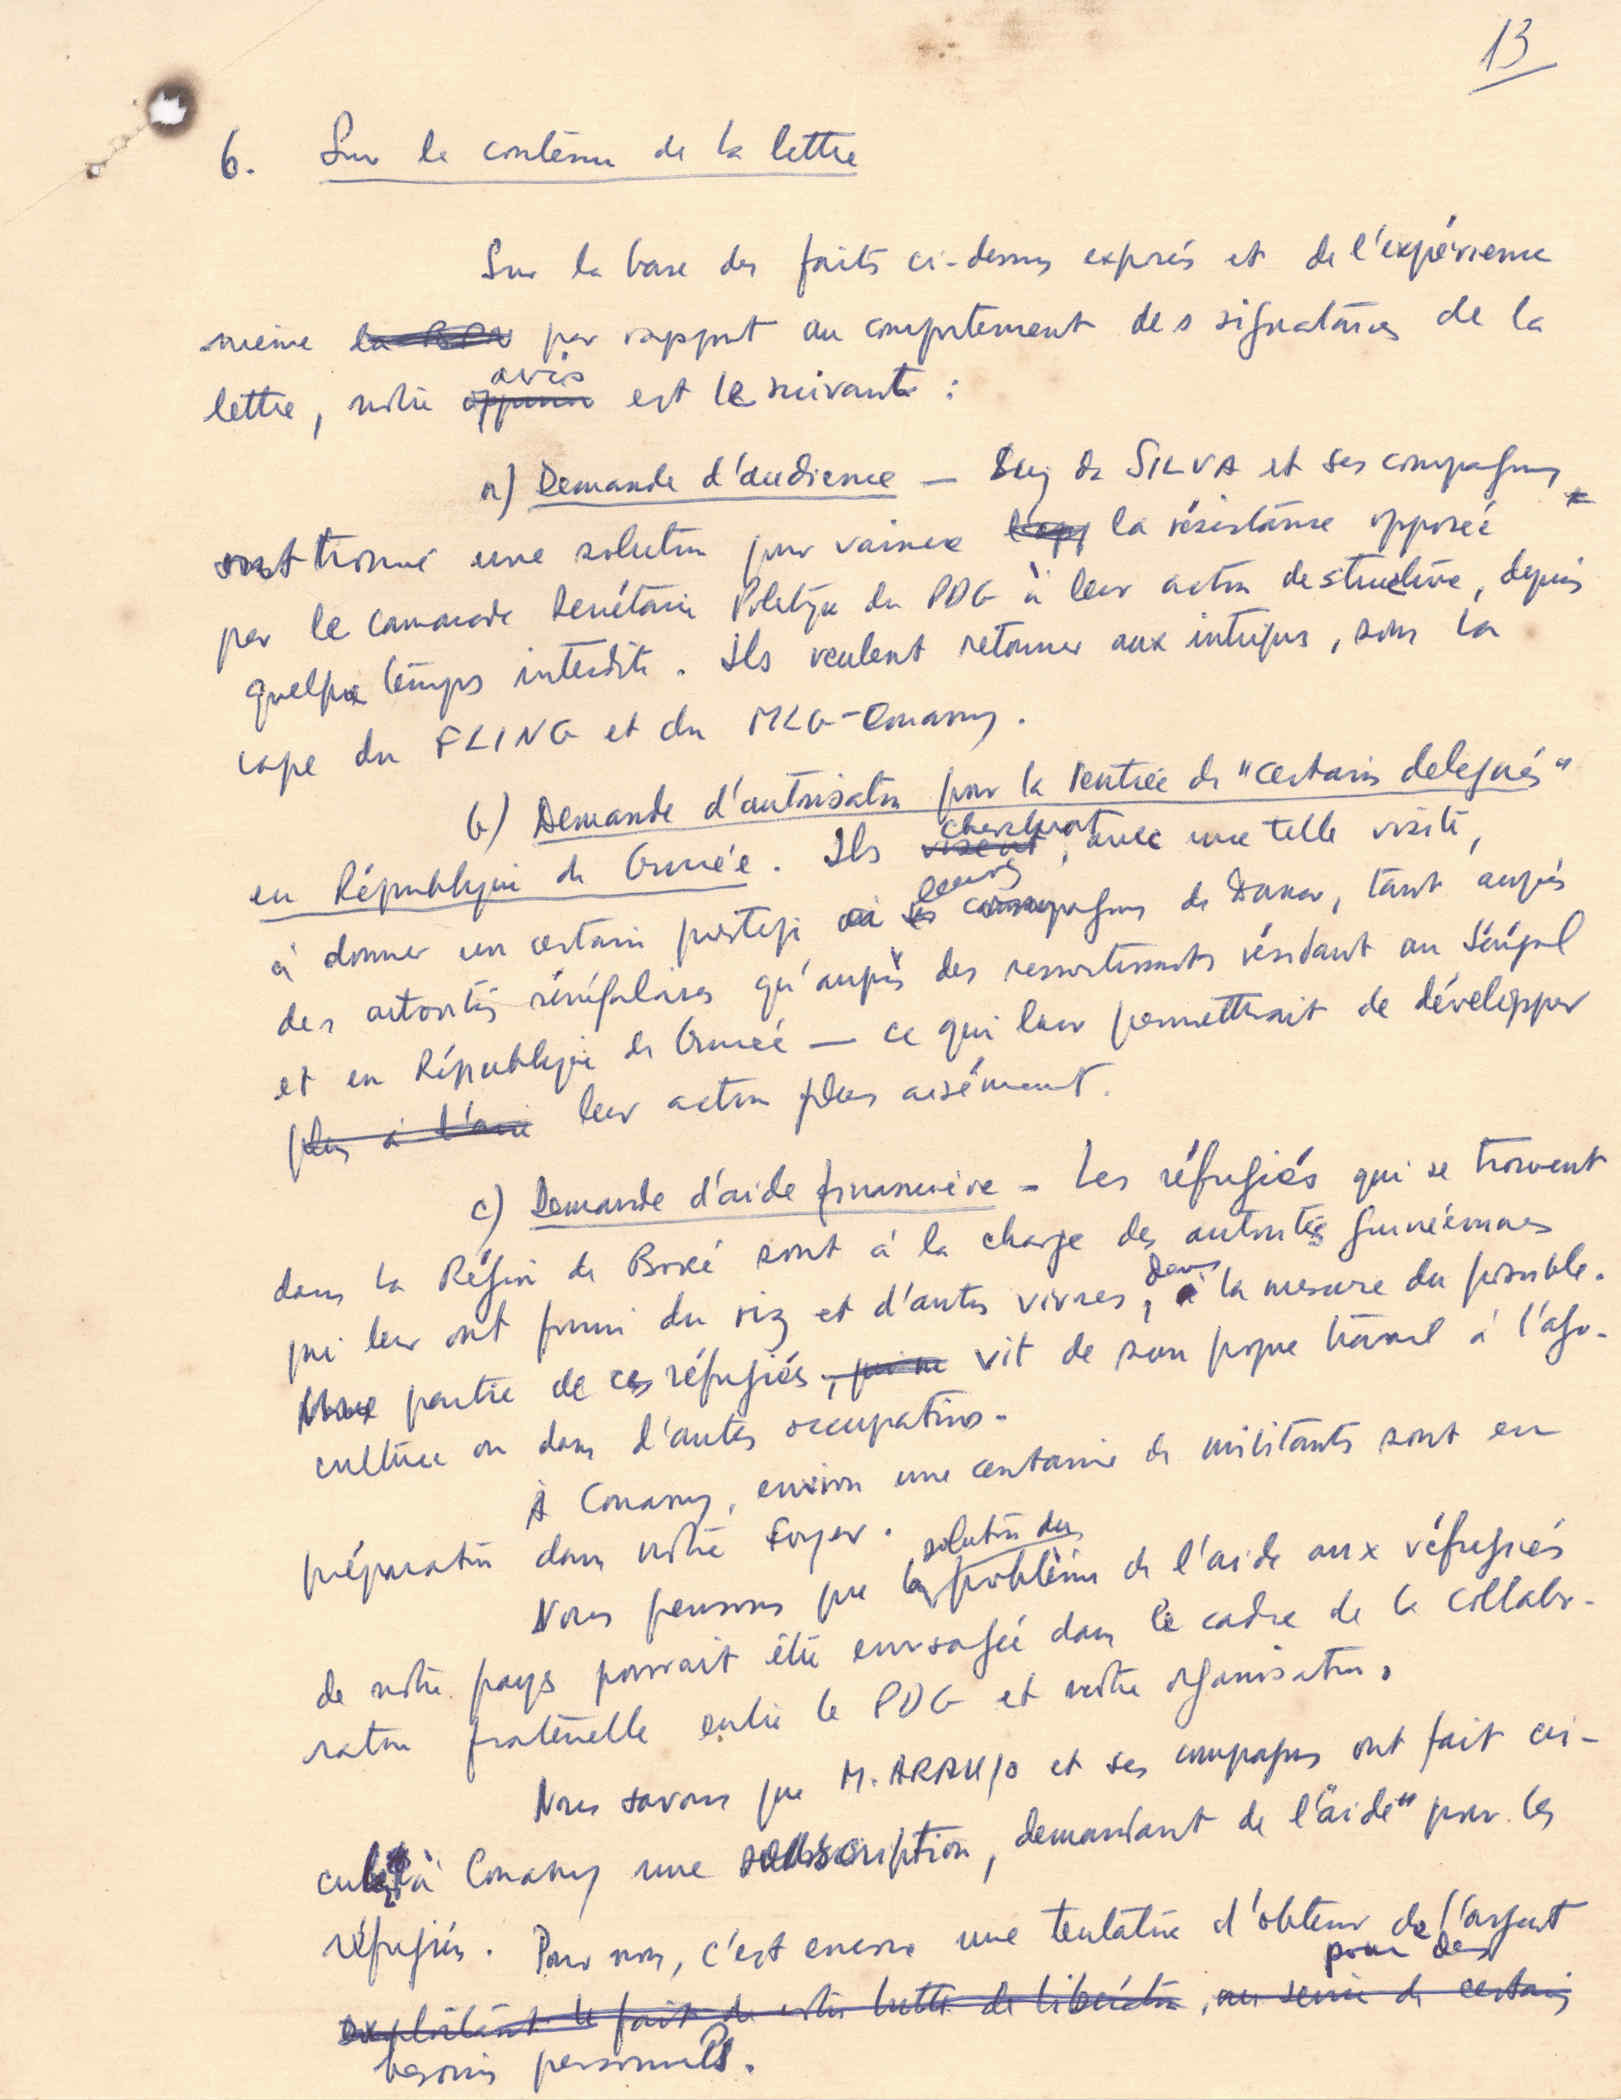 13
6. Sur le contenu de la lettre
Sur la base des faits ci-dessus exposés et de l'expérience
même par rapport au comportement des signataires de la
avis
lettre, notre est le suivant :
a) Demande d'audience — de SILVA et ses compagnons
ont trouvé une solution pour vaincre la résistance opposée
par le camarade Secrétaire Politique du PDG à leur action destructive, depuis
quelque temps interdite. Ils veulent retourner aux intrigues, sous la
cape du FLING et du MLG-Conakry.
b) Demande d'autorisation pour la rentrée de "certains delegués"
cherchent
en République de Guinée. Ils visent, avec une telle visite,
leurs
à donner un certain prestige à compagnons de Dakar, tant auprès
des autorités sénégalaises qu'auprès des ressortissants résidant au Sénégal
et en République de Guinée — ce qui leur permettrait de développer
plus à l'aise leur action plus aisément.
c) Demande d'aide financière - Les réfugiés qui se trouvent
dans la Région de Boké sont à la charge des autorités guinéennes
dans
qui leur ont fourni du riz et d'autres vivres, à la mesure du possible.
Une partie de ces réfugiés, qui ne vit de son propre travail à l'agri-
culture ou dans d'autres occupations.
À Conakry, environ une centaine de militants sont en
préparation dans notre Foyer.
solution du
Nous pensons que la problème de l'aide aux réfugiés
de notre pays pourrait être envisagée dans le cadre de la collabo-
ration fraternelle entre le PDG et notre organisation.
Nous savons que M. ARAUJO et ses compagnons ont fait cir-
culer à Conakry une souscription, demandant de l'"aide" pour les
réfugiés. Pour nous, c'est encore une tentative d'obtenir de l'argent
pour des
exploitant le fait de notre lutte de libération, au service de certains
besoins personnels.